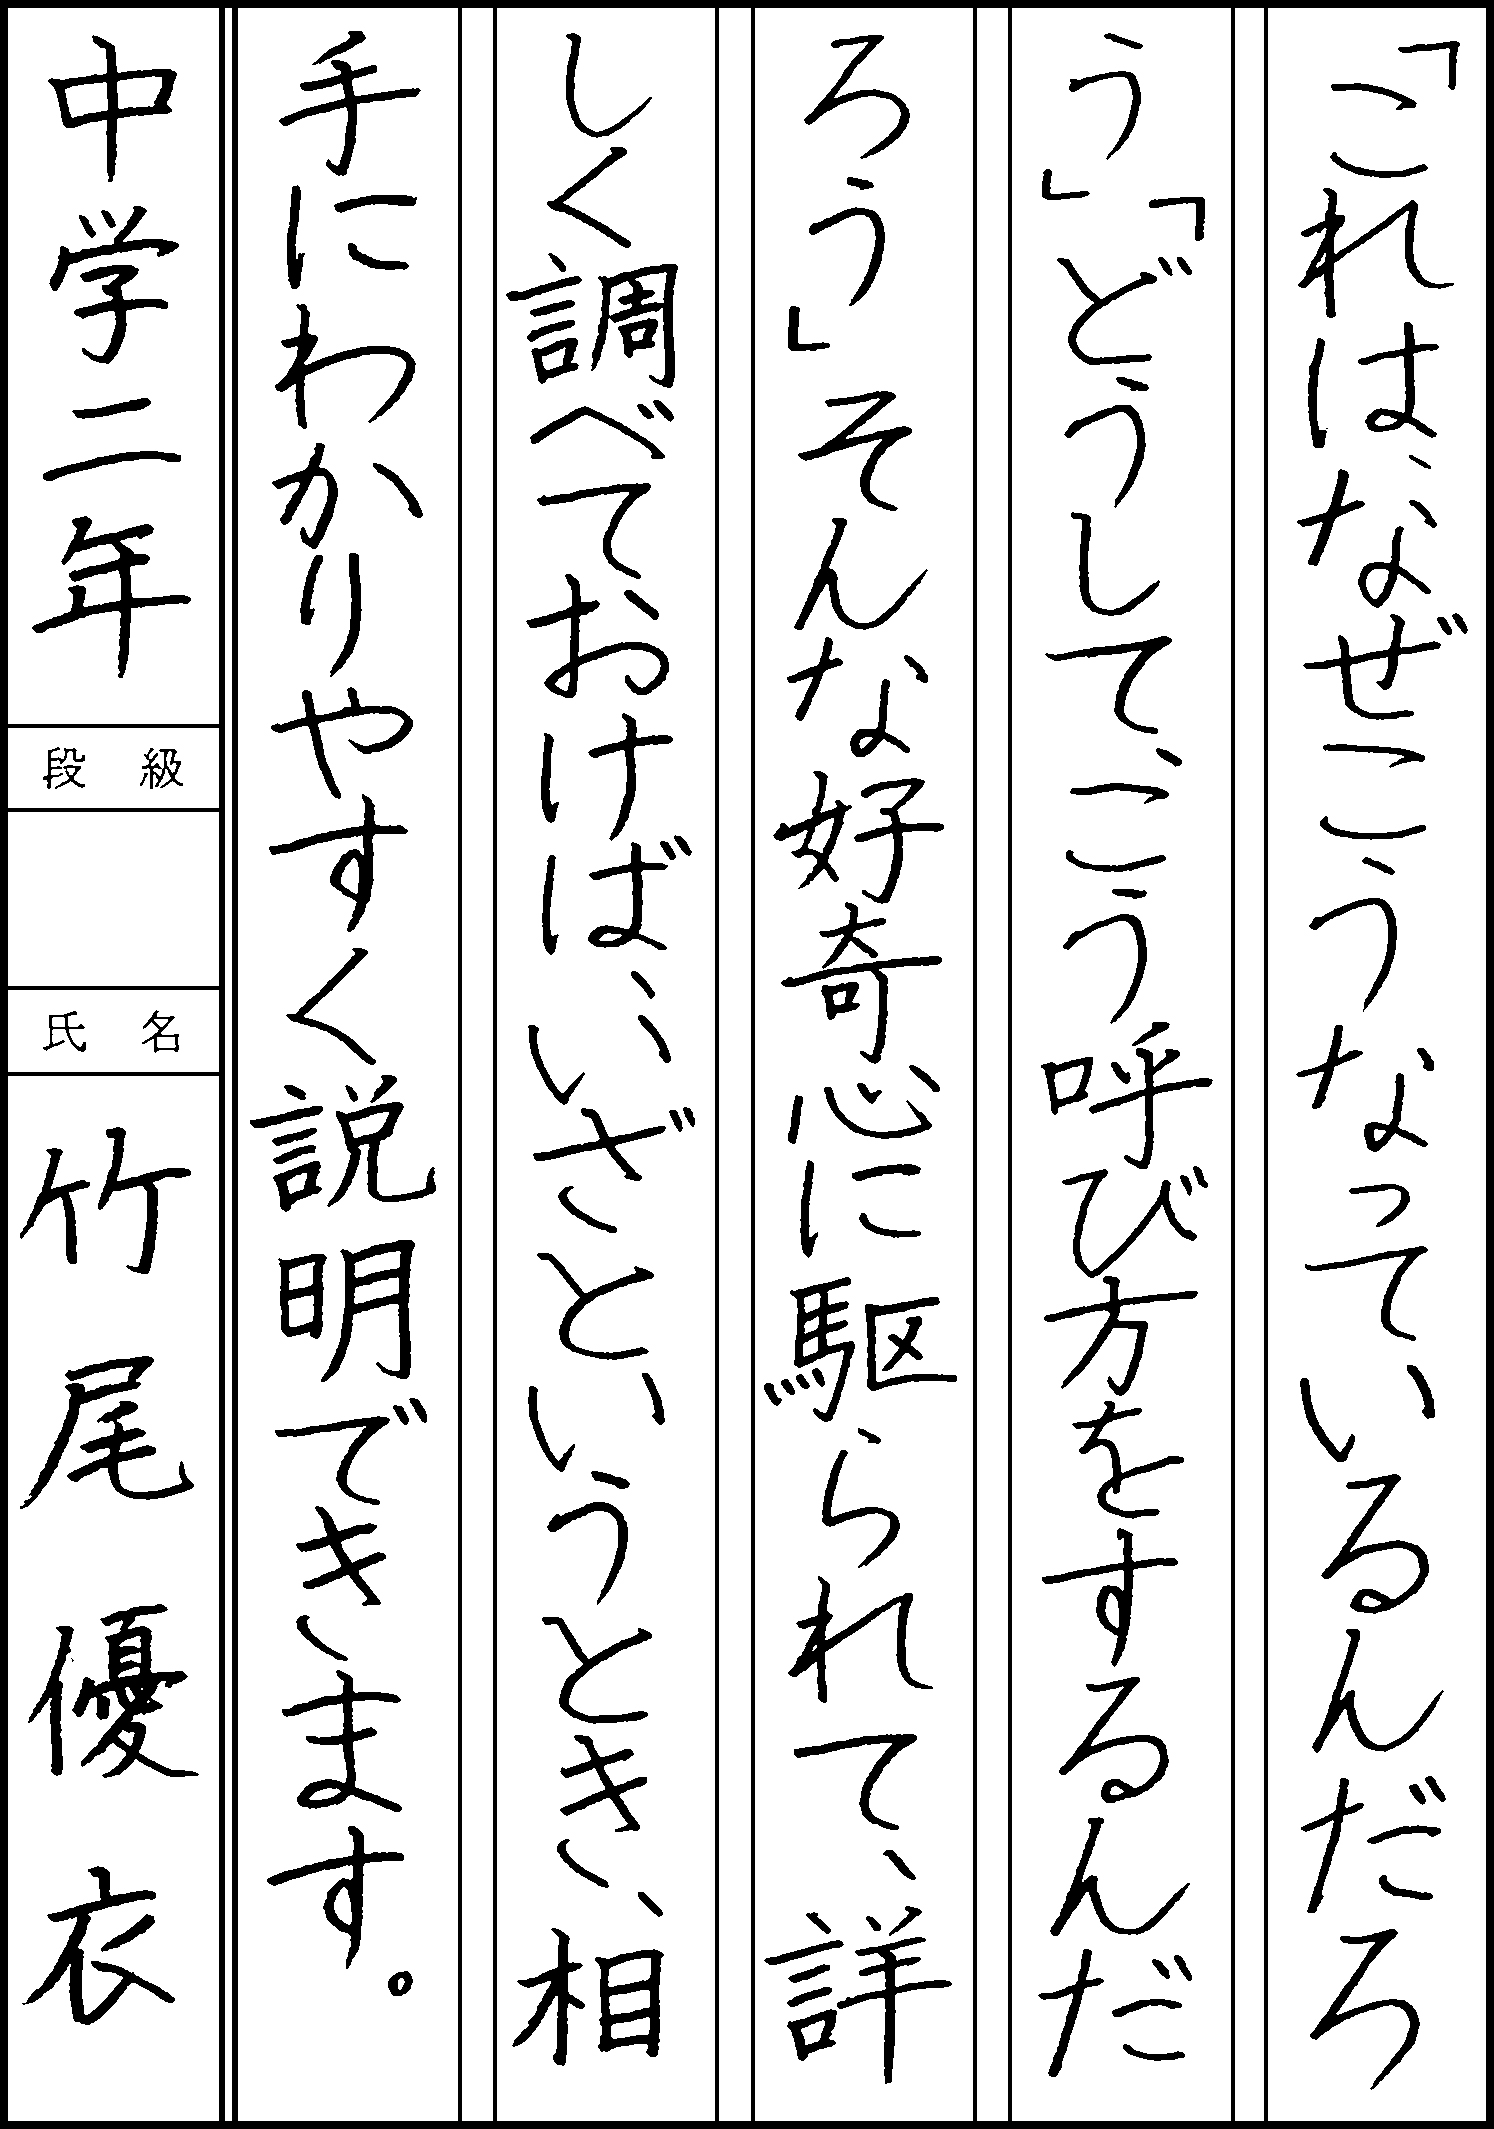 「これはなぜこうなっているんだろ
う」「どうして、こう呼び方をするんだ
ろう」そんな好奇心に駆られて、詳
しく調べておけば、いざというとき、相
手にわかりやすく説明できます。
中学二年
段級
氏名
竹尾優衣